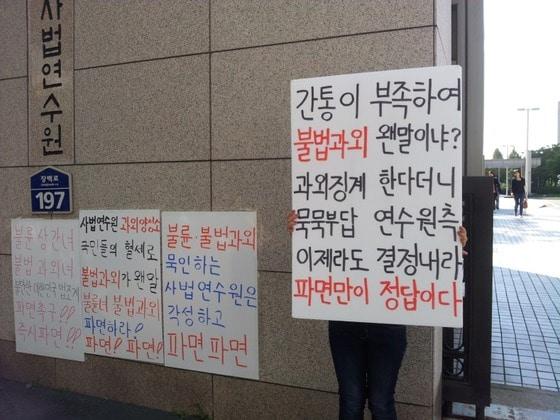 사법연수원
장백로
197
불륜 상간녀
불법 과외녀
파면촉구!!!
즉시파면!!
사법연수원 과외양성소
국민들의 혈세로
불법과외가 왠말
불륜녀 불법과외
파면하라!
파면! 파면!
불륜·불법과외
묵인하는
사법연수원은
각성하고
파면 파면
간통이 부족하여
불법과외 왠말이냐?
과외징계 한다더니
묵묵부답 연수원측
이제라도 결정내라
파면만이 정답이다